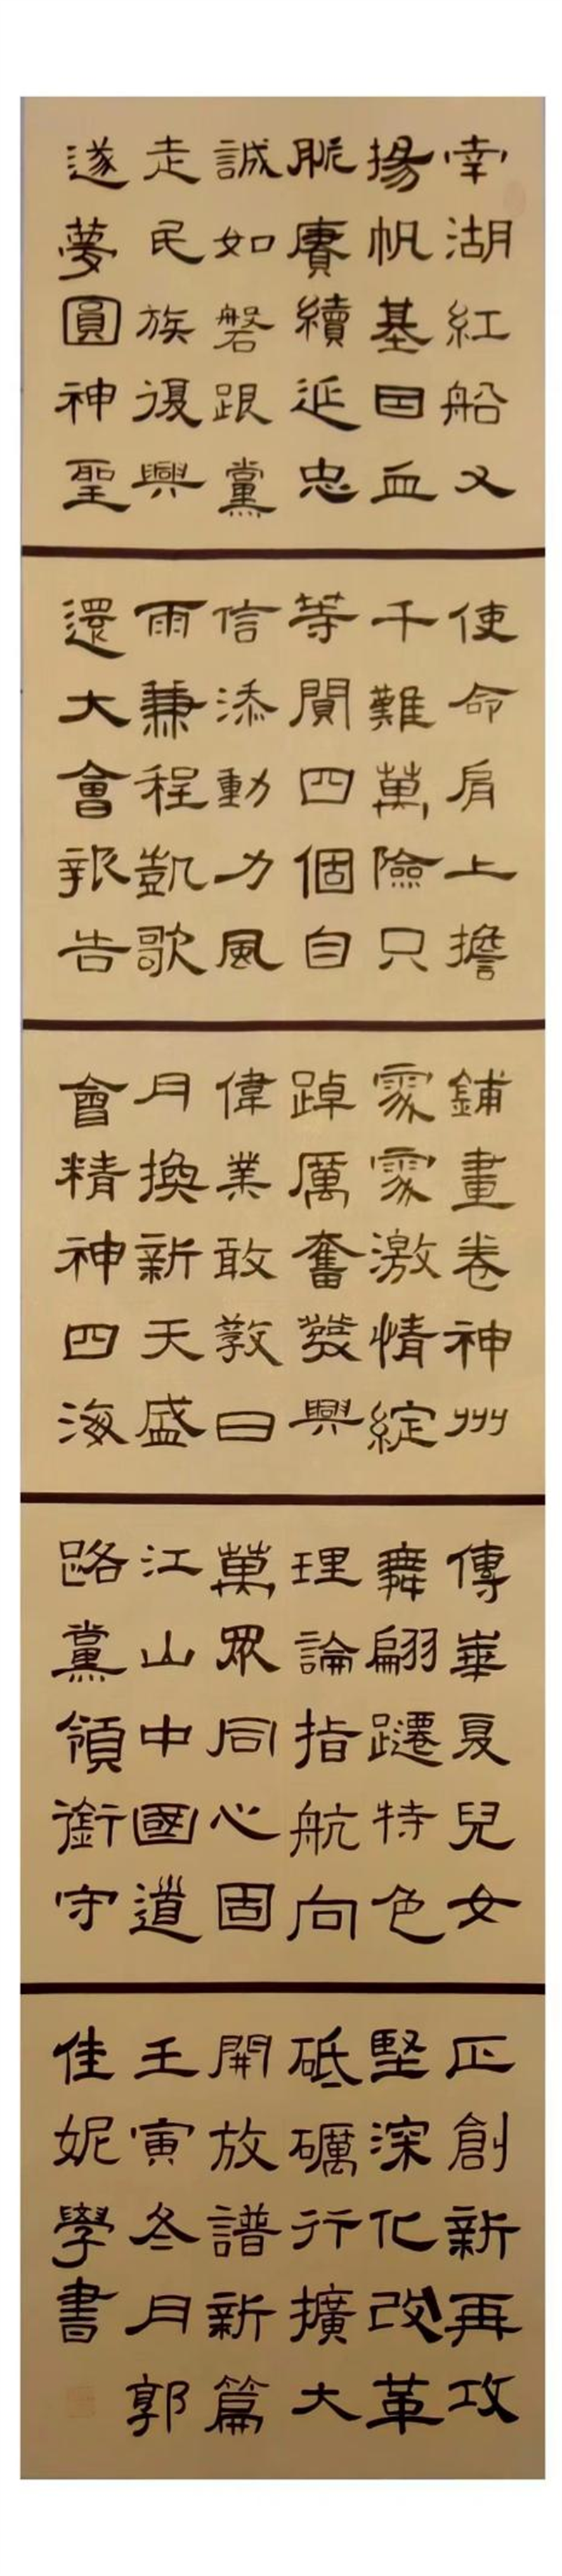 南湖紅船又
揚帆基因血
脈賡續延忠
誠如磐跟黨
走民族復興
遂夢圓神聖
使命肩上擔
千難萬險只
等閒四個自
信添動力風
雨兼程凱歌
還大會報告
鋪畫卷神州
處處激情綻
踔厲奮發興
偉業敢教日
月換新天盛
會精神四海
傳華夏兒女
舞翩躚特色
理論指航向
萬眾同心固
江山中國道
路黨領銜守
正創新再攻
堅深化改革
砥礪行擴大
開放譜新篇
壬寅冬月郭
佳妮學書